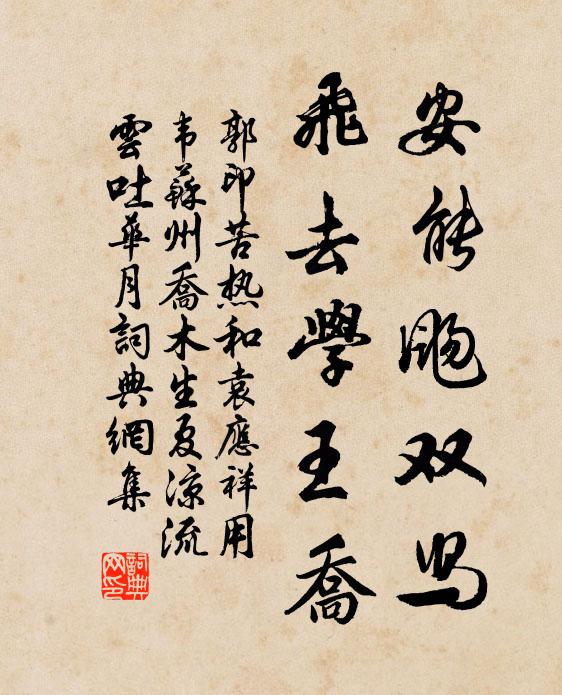 安能颺双舄
飛去學王喬
郭印苦热和袁應祥用
韦蘇州喬木生夏涼流
雲吐華月詞典網集
詞典网印